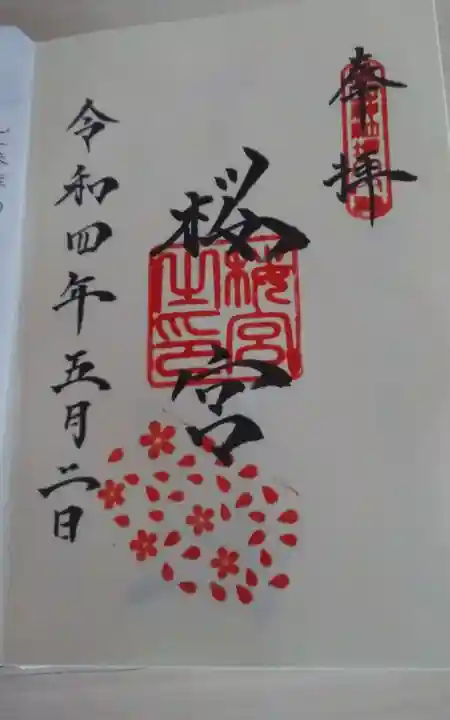 奉拝
桜宮
櫻宮
之印
令和四年五月二日